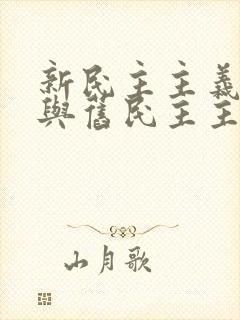 新民主主義
與舊民主主
山月歌